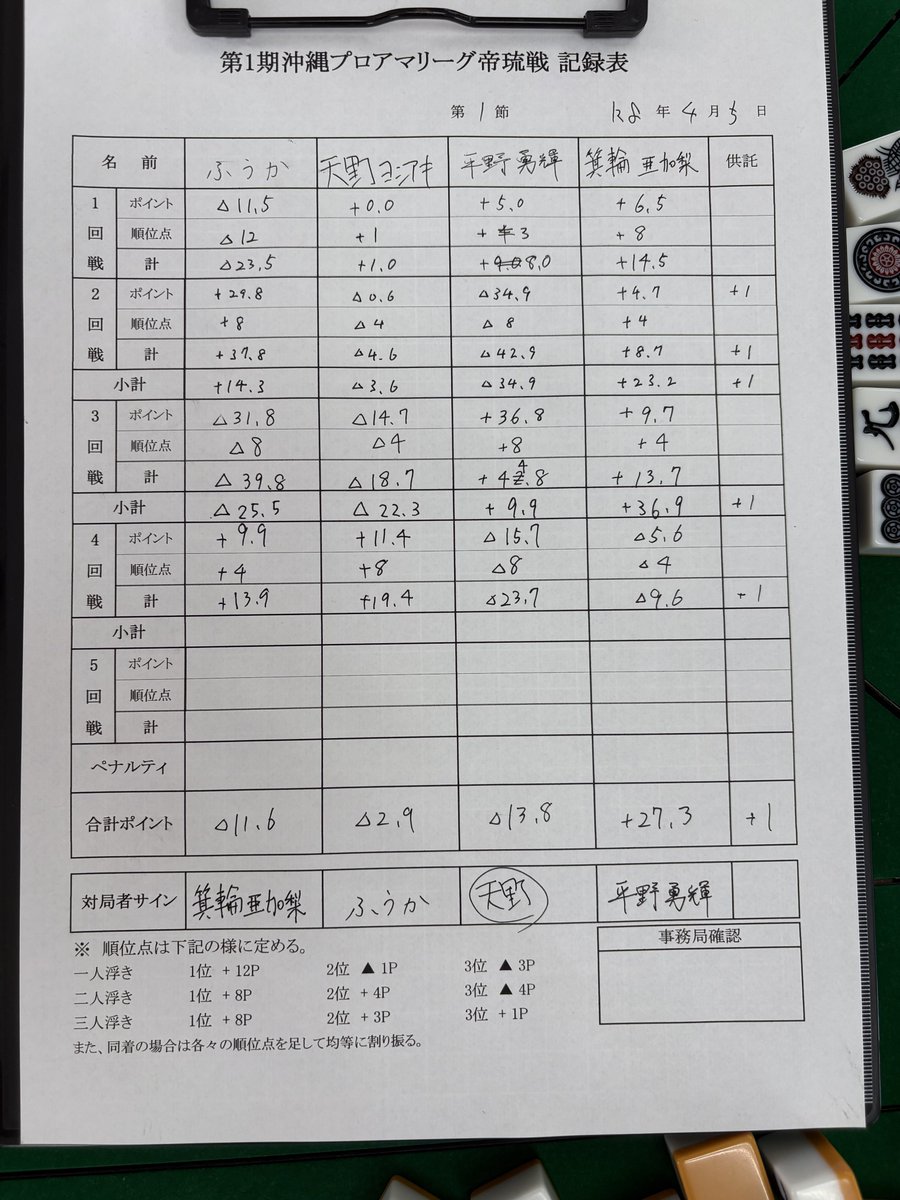 第1期沖縄プロアマリーグ帝琉戦 記録表
第 1 節 R8 年 4 月 5 日
名 前 ふうか 天野ヨシアキ 平野 勇輝 箕輪 亜加梨 供託
1 ポイント △11.5 +0.0 +5.0 +6.5
回 順位点 △12 +1 + 3 +8
戦 計 △23.5 +1.0 +8.0 +14.5
2 ポイント +29.8 △0.6 △34.9 +4.7 +1
回 順位点 +8 △4 △8 +4
戦 計 +37.8 △4.6 △42.9 +8.7 +1
小計 +14.3 △3.6 △34.9 +23.2 +1
3 ポイント △31.8 △14.7 +36.8 +9.7
回 順位点 △8 △4 +8 +4
戦 計 △39.8 △18.7 +44.8 +13.7
小計 △25.5 △22.3 +9.9 +36.9 +1
4 ポイント +9.9 +11.4 △15.7 △5.6
回 順位点 +4 +8 △8 △4
戦 計 +13.9 +19.4 △23.7 △9.6 +1
小計
5 ポイント
回 順位点
戦 計
ペナルティ
合計ポイント △11.6 △2.9 △13.8 +27.3 +1
対局者サイン 箕輪亜加梨 ふうか 天野 平野勇輝
事務局確認
※ 順位点は下記の様に定める。
一人浮き 1位 +12P 2位 ▲1P 3位 ▲3P
二人浮き 1位 +8P 2位 +4P 3位 ▲4P
三人浮き 1位 +8P 2位 +3P 3位 +1P
また、同着の場合は各々の順位点を足して均等に割り振る。